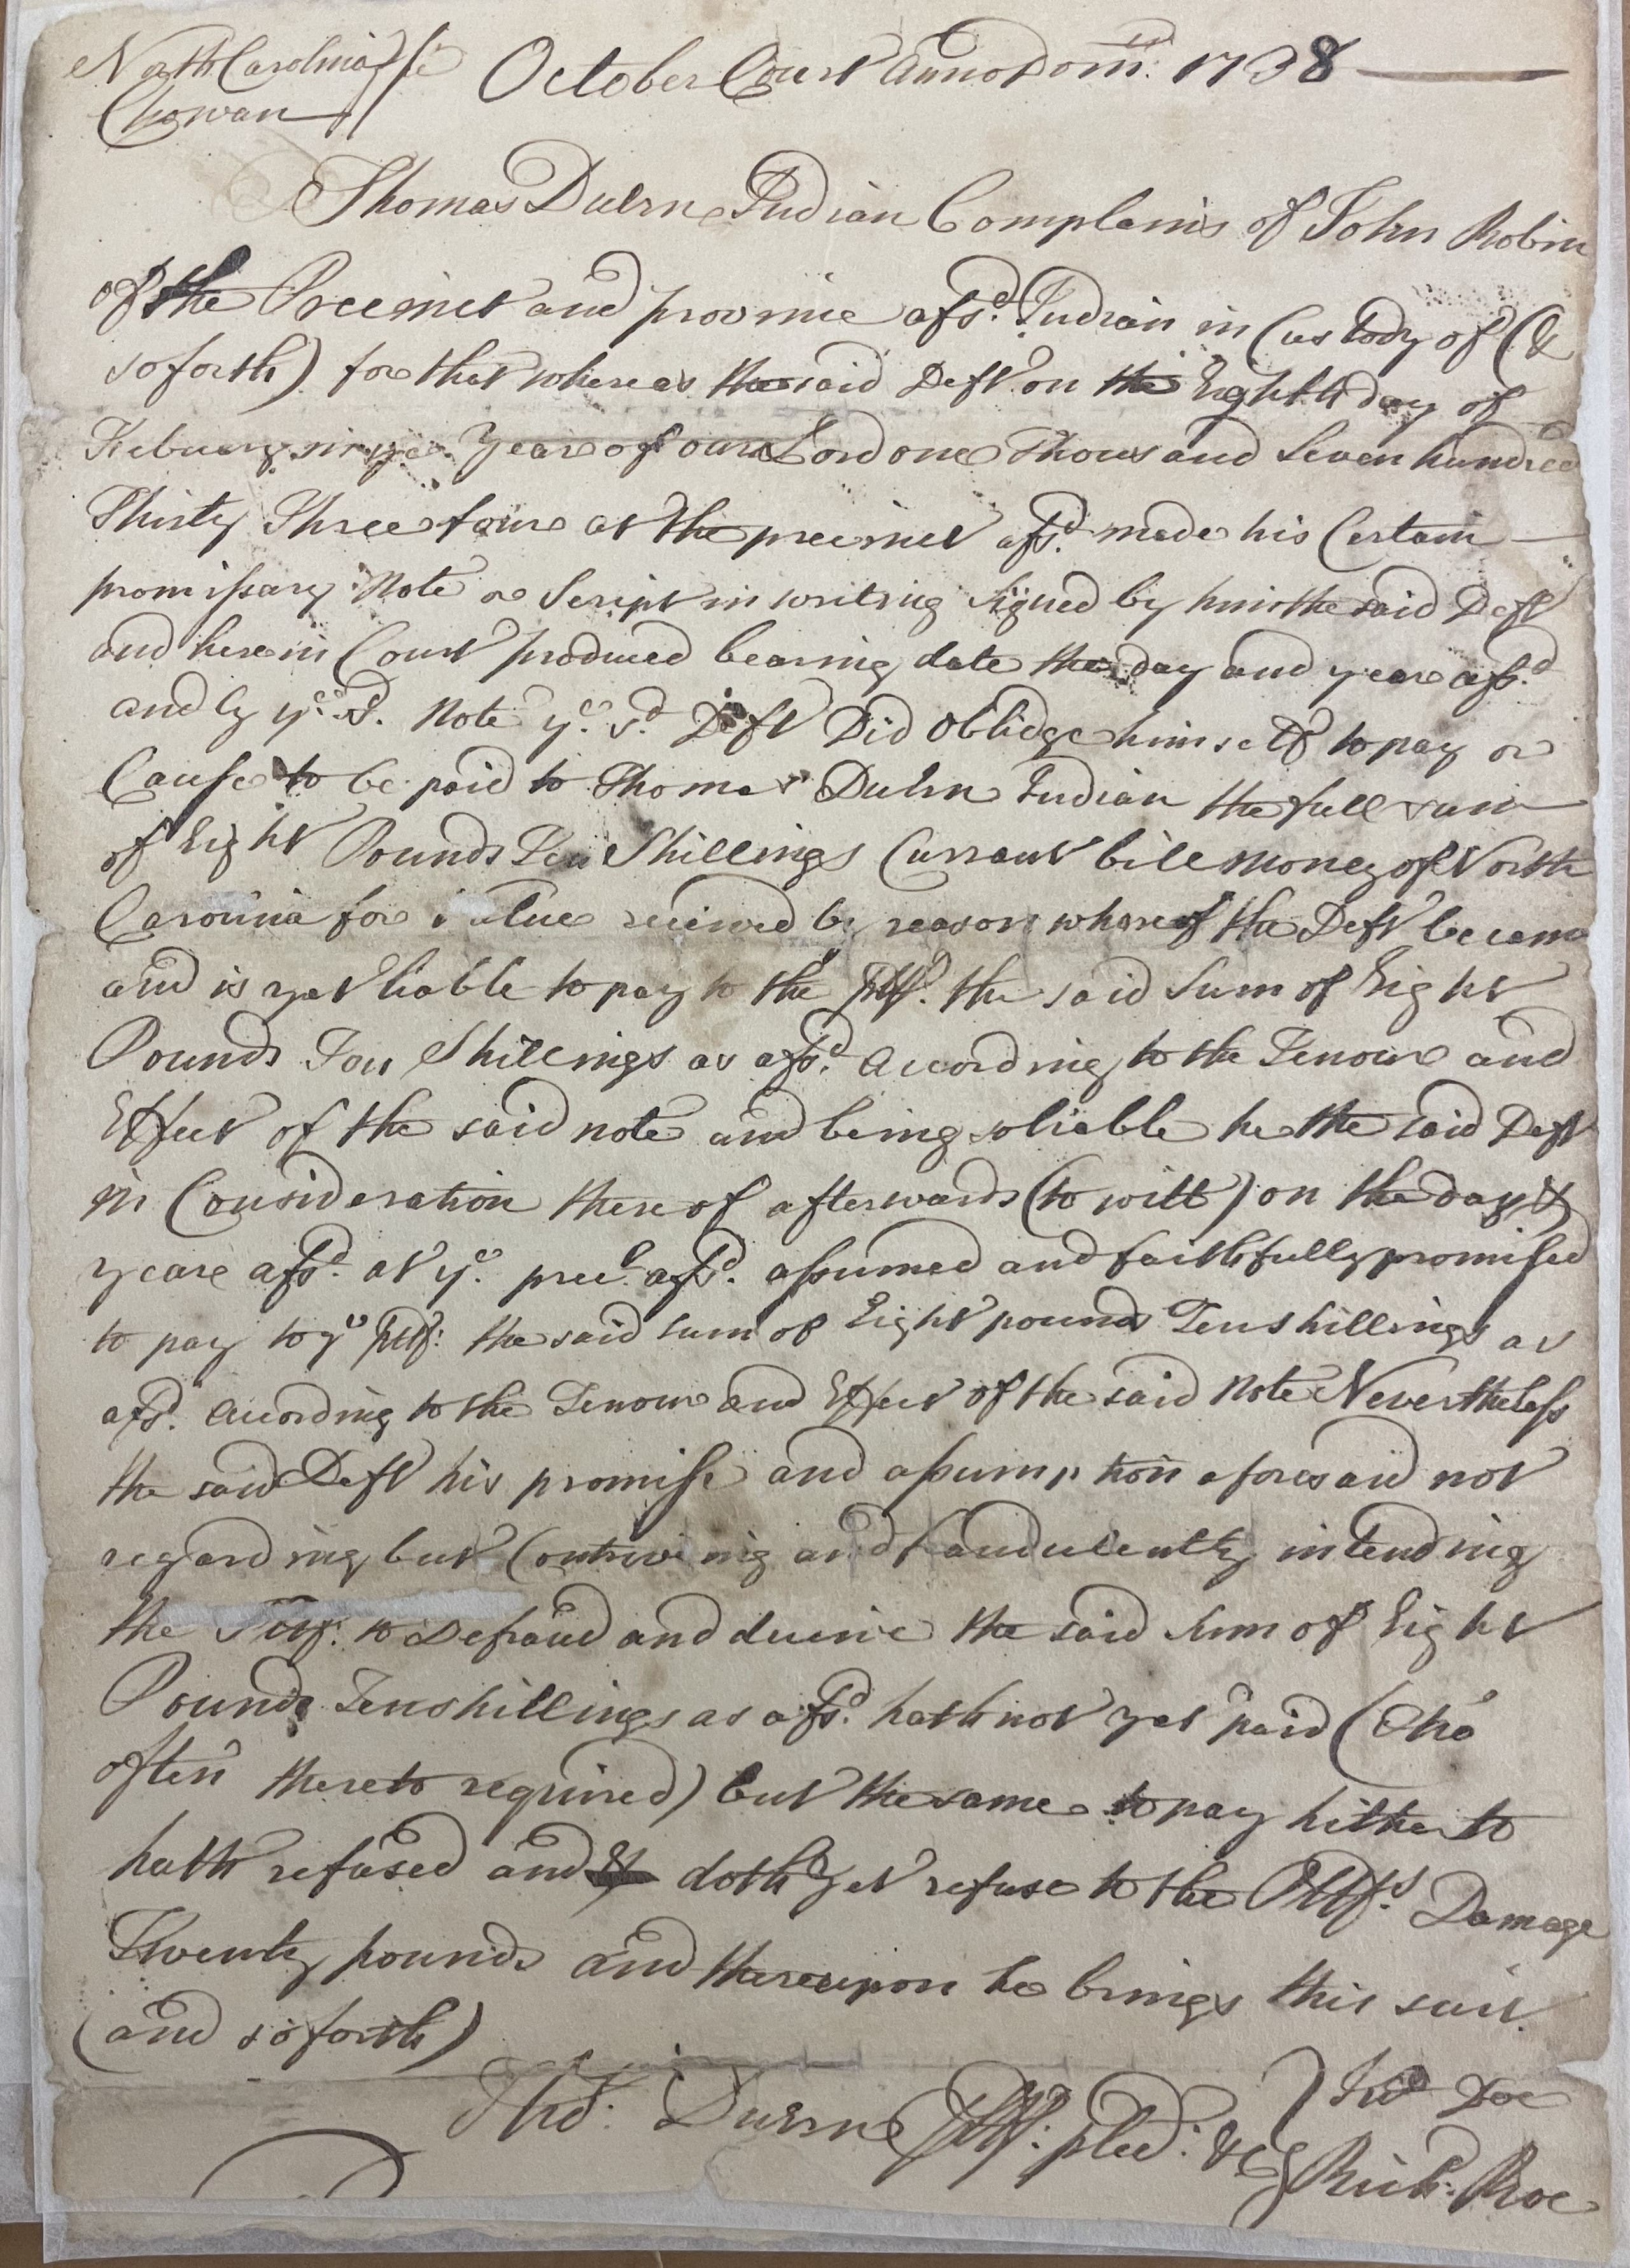 North Carolina } sc
Chowan
October Court Anno Dom: 1738
Thomas Duern Indian Complains of John Robin
of the Precinct and province afsd. Indian in Custody of (&
so forth) for that whereas the said Deft on the Eighth day of
Februery in ye Year of our Lord one Thousand Seven hundred
Thirty Three four at the precinct afsd. made his Certain
promissary Note or Script in writing Signed by him the said Deft
and here in Court produced bearing date the day and year afsd
and by ye. sd. Note ye. sd. Deft Did Oblidge himself to pay or
Cause to be paid to Thomas Duern Indian the full sum
of Eight Pounds Ten Shillings Currant bill money of North
Carolina for value recieved by reason whareof the Deft became
and is yet liable to pay to the Pltf. the said Sum of Eight
Pounds Ten Shillings as afsd. According to the Tenour and
Effect of the said note and being so liable he the said Deft
in Consideration there of afterwards (to witt) on the day &
yeare afsd. at ye. prect. afsd. assumed and faithfully promised
to pay to ye Pltf: the said sum of Eight pounds Ten shillings as
afsd. according to the Tenour and Effect of the said Note Nevertheless
the said Deft his promise and assumption aforesaid not
regarding but Contriveing and fraudulently intending
the Pltf: to Defraud and deceive the said Sum of Eight
Pounds Ten shillings as afsd. hath not yet paid (Tho'
often thereto required) but the same to pay hitherto
hath refused and doth yet refuse to the Pltfs. Damage
Twenty pounds and thereupon he brings this suit
(and so forth)
Tho: Duern Pltf: pled: &c } Jno Doe
Rich: Roe